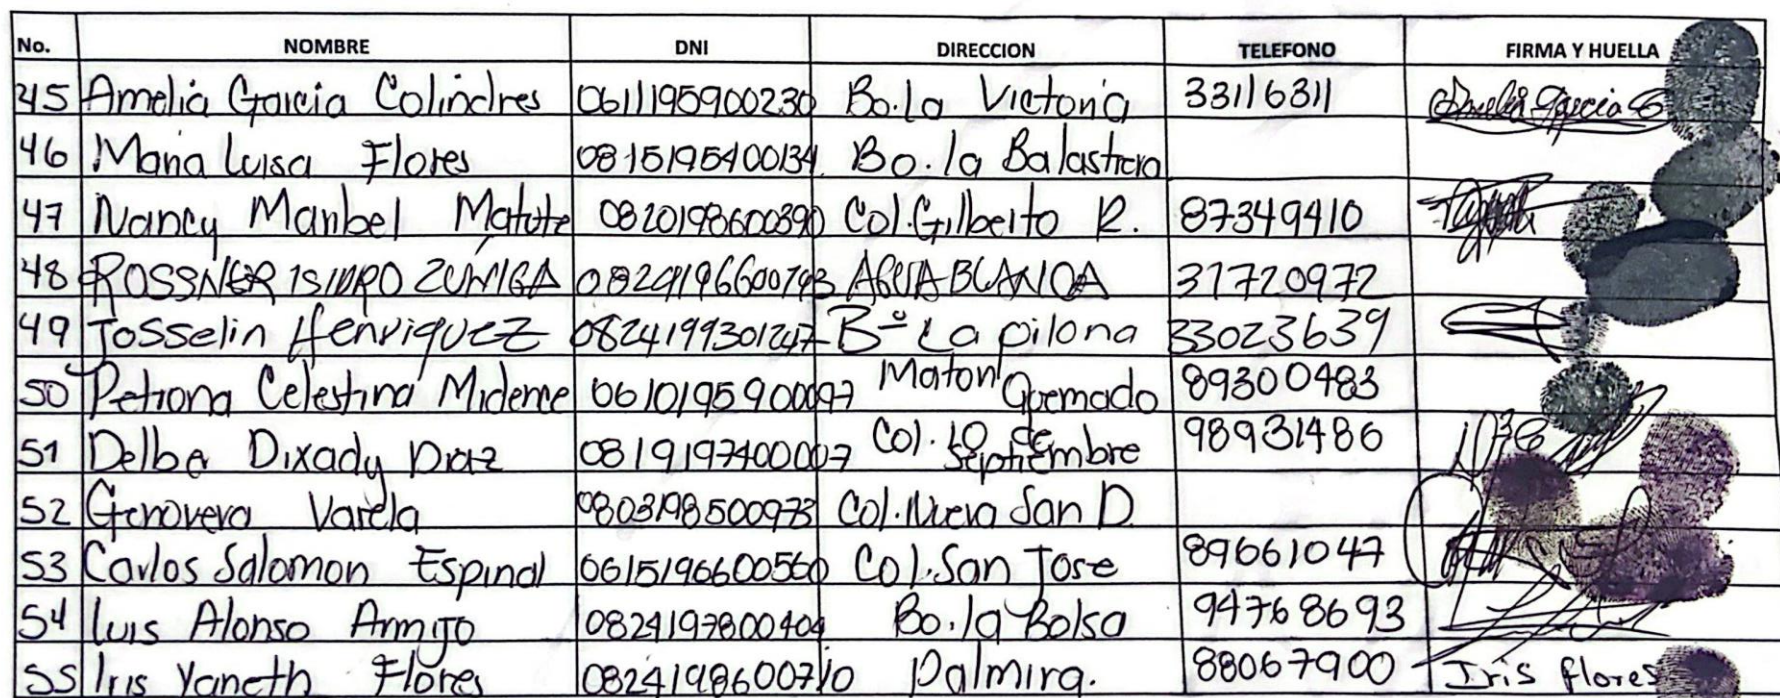 No. NOMBRE DNI DIRECCION TELEFONO FIRMA Y HUELLA
45 Amelia Garcia Colindres 0611195900230 Bo. la Victoria 33116311 Amelia Garcia C
46 Maria Luisa Flores 0815195400134 Bo. la Balastrera
47 Nancy Maribel Matute 0820198600390 Col. Gilberto R. 87349410
48 ROSSNER ISIDRO ZUNIGA 0824196600793 AGUA BLANCA 31720972
49 Josselin Henriquez 0824199301247 Bº La pilona 33023639
50 Petrona Celestina Midence 0610195900097 Maton Quemado 89300483
51 Delba Dixady Diaz 0819197400007 Col. 10 de Septiembre 98931486
52 Genoveva Varela 0803198500973 Col. Nueva San D.
53 Carlos Salomon Espinal 0615196600560 Col. San Jose 89661047
54 Luis Alonso Armijo 0824197800404 Bo. la Bolsa 94768693
55 Iris Yaneth Flores 0824198600710 Palmira. 88067900 Iris flores